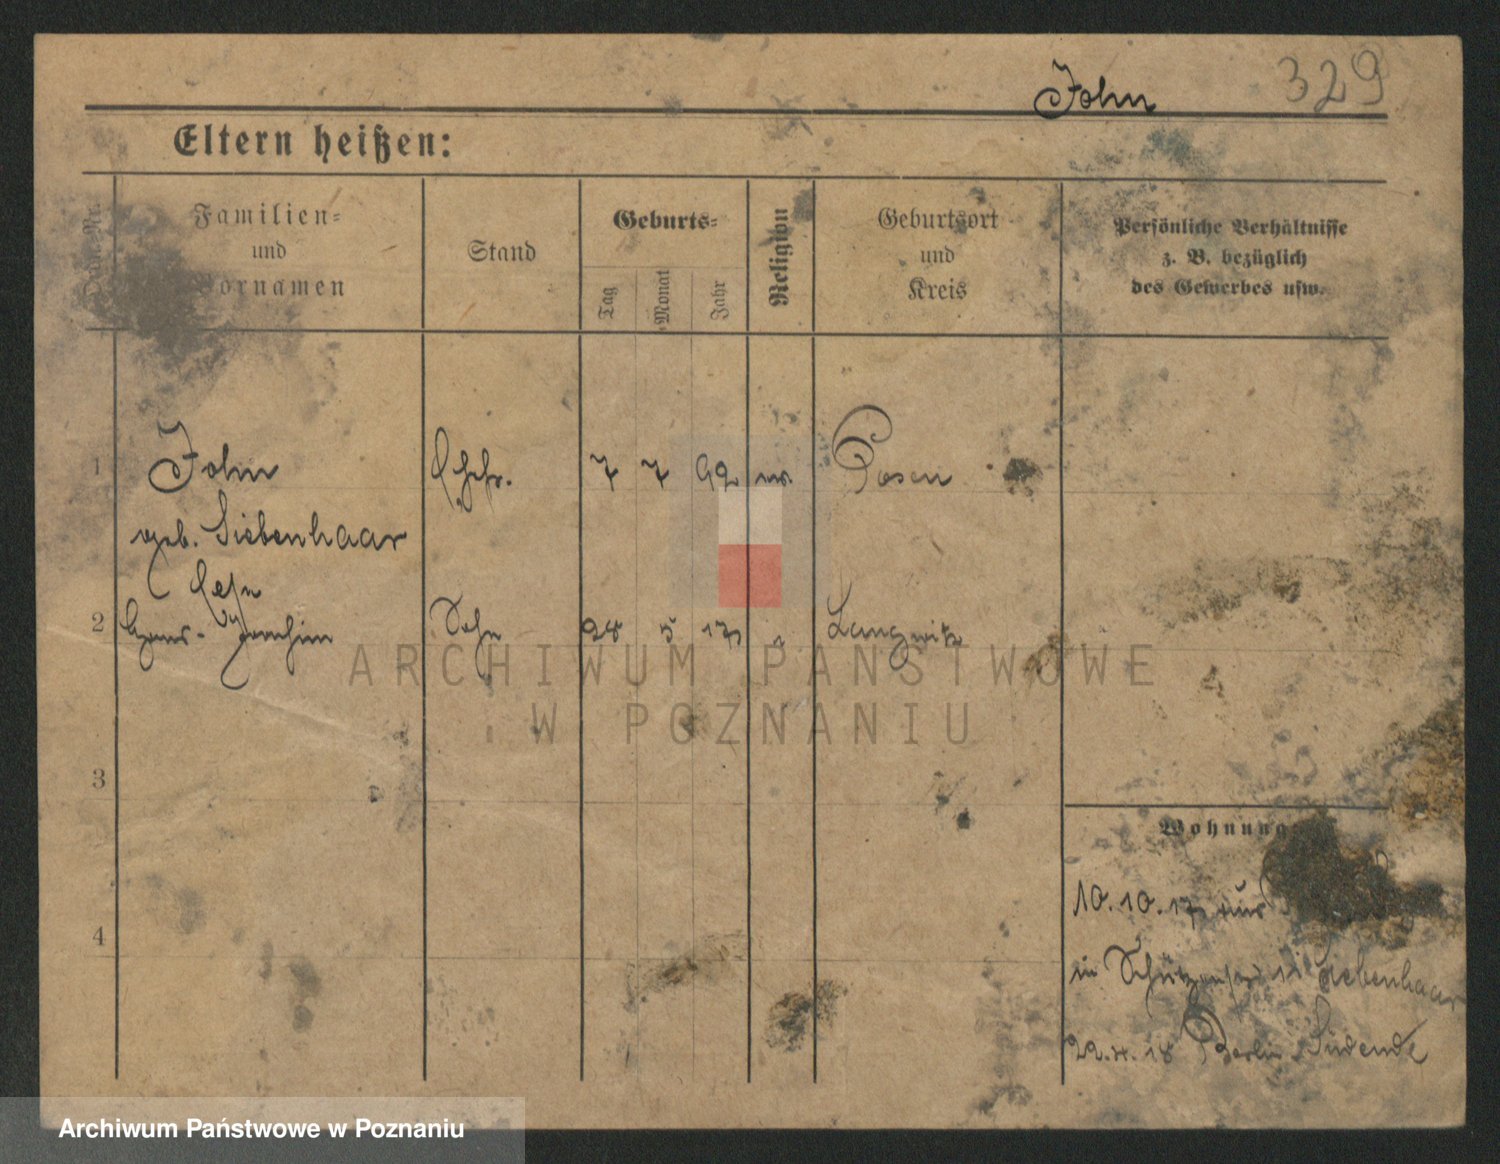 John 329
Eltern heißen:
Familien=
und
Vornamen
Stand
Geburts=
Tag
Monat
Jahr
Religion
Geburtsort
und
Kreis
Persönliche Verhältnisse
z. B. bezüglich
des Gewerbes usw.
1 John Ehefr. 7 7 92 ev. Posen
geb. Siebenhaar
2 Hans-Joachim Sohn 28 5 17 " Langwitz
3
4
Wohnung
10.10.17 aus
in Siebenhaar
22.4.18 Berlin Südende
ARCHIWUM PAŃSTWOWE
W POZNANIU
Archiwum Państwowe w Poznaniu